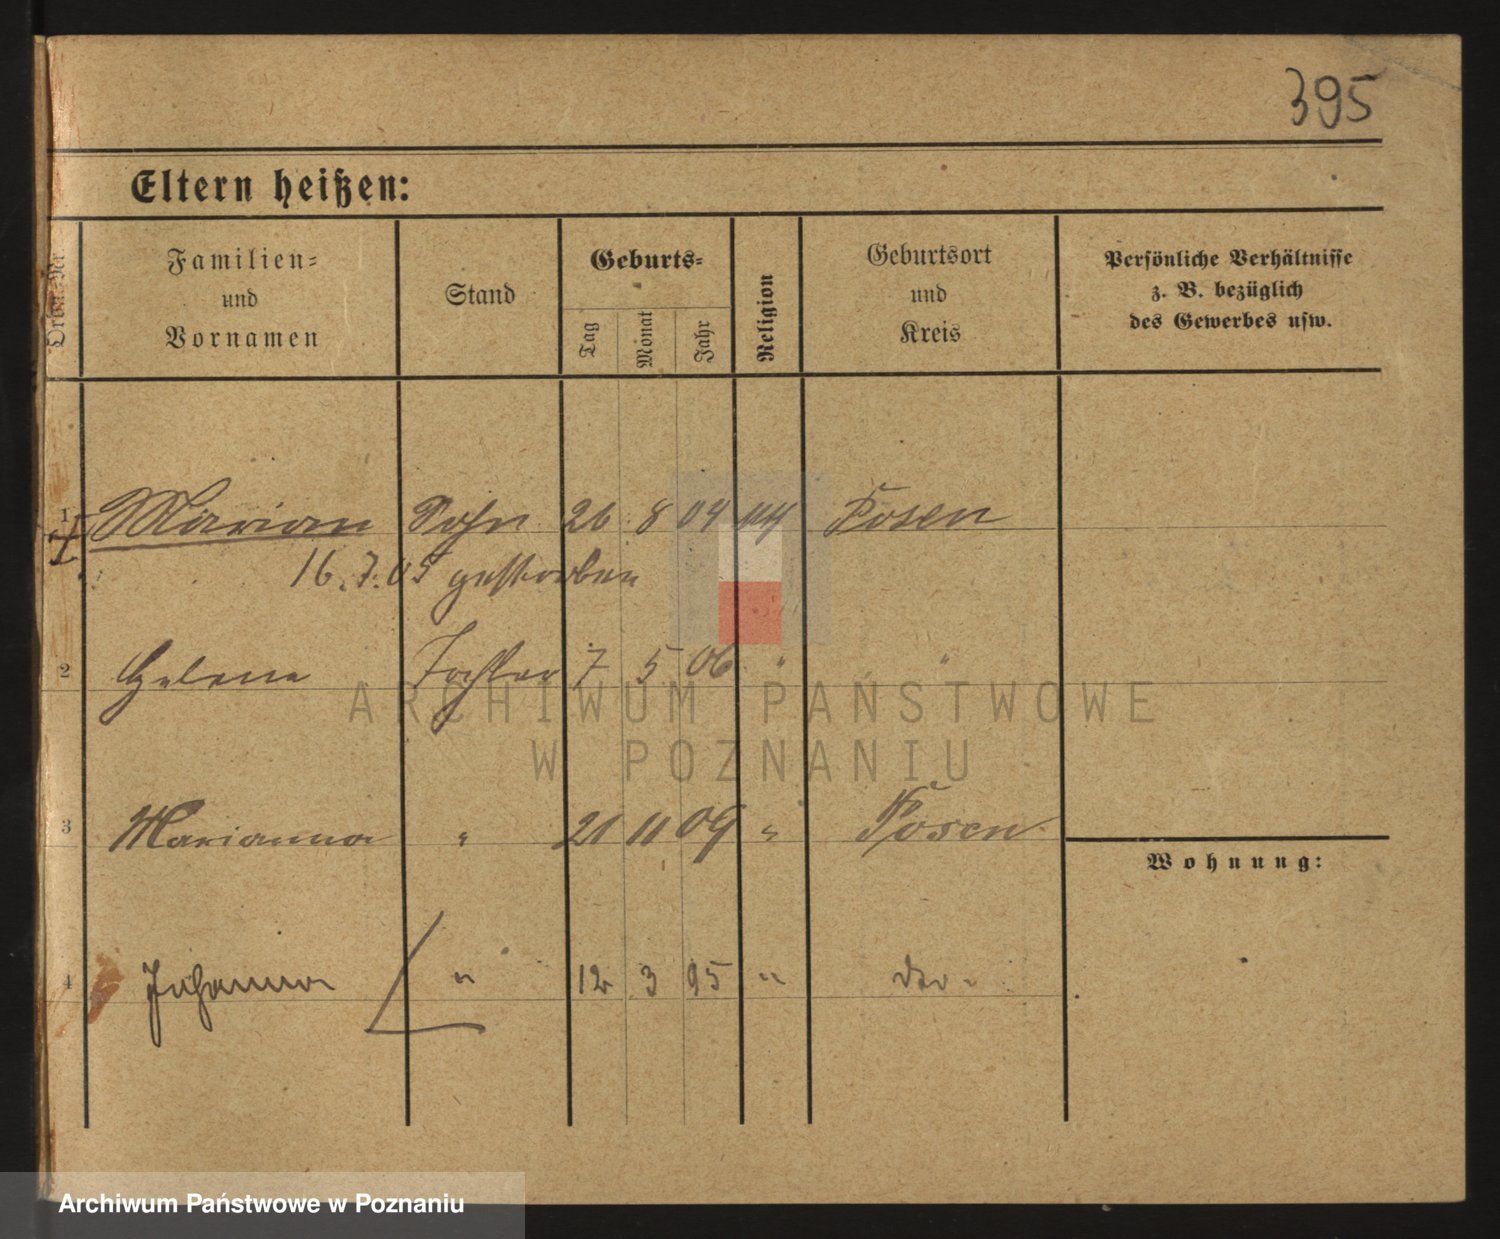 395
Eltern heißen:
Ordn.-Nr
Familien-
und
Vornamen
Stand
Geburts-
Tag
Monat
Jahr
Religion
Geburtsort
und
Kreis
Persönliche Verhältnisse
z. B. bezüglich
des Gewerbes usw.
1 Marian Sohn 26 8 04 Posen
16.7.05 gestorben
2 Helene Tochter 7 5 06 " "
ARCHIWUM PAŃSTWOWE
W POZNANIU
3 Marianna " 21 11 09 " Posen
Wohnung:
4 Johanna " 12 3 95 " dto.
Archiwum Państwowe w Poznaniu